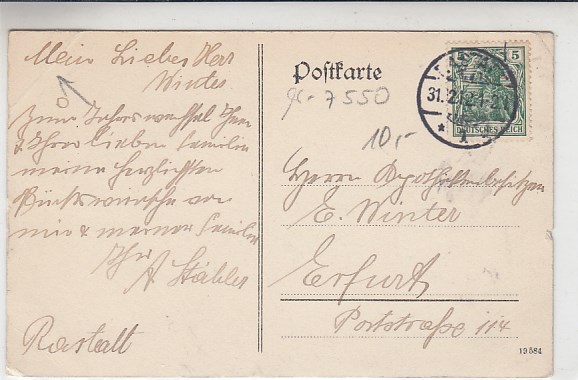 Mein Lieber Herr
Winter
Zum Jahreswechsel Ihnen
& Ihrer lieben Familie
meine herzlichsten
Glückwünsche von
mir & meiner Familie
Ihr
A. Stähler
Rastatt
Postkarte
7550
10,-
RASTATT
31.12.
5
DEUTSCHES REICH
Herrn Apothekenbesitzer
E. Winter
Erfurt
Poststraße 114
19584